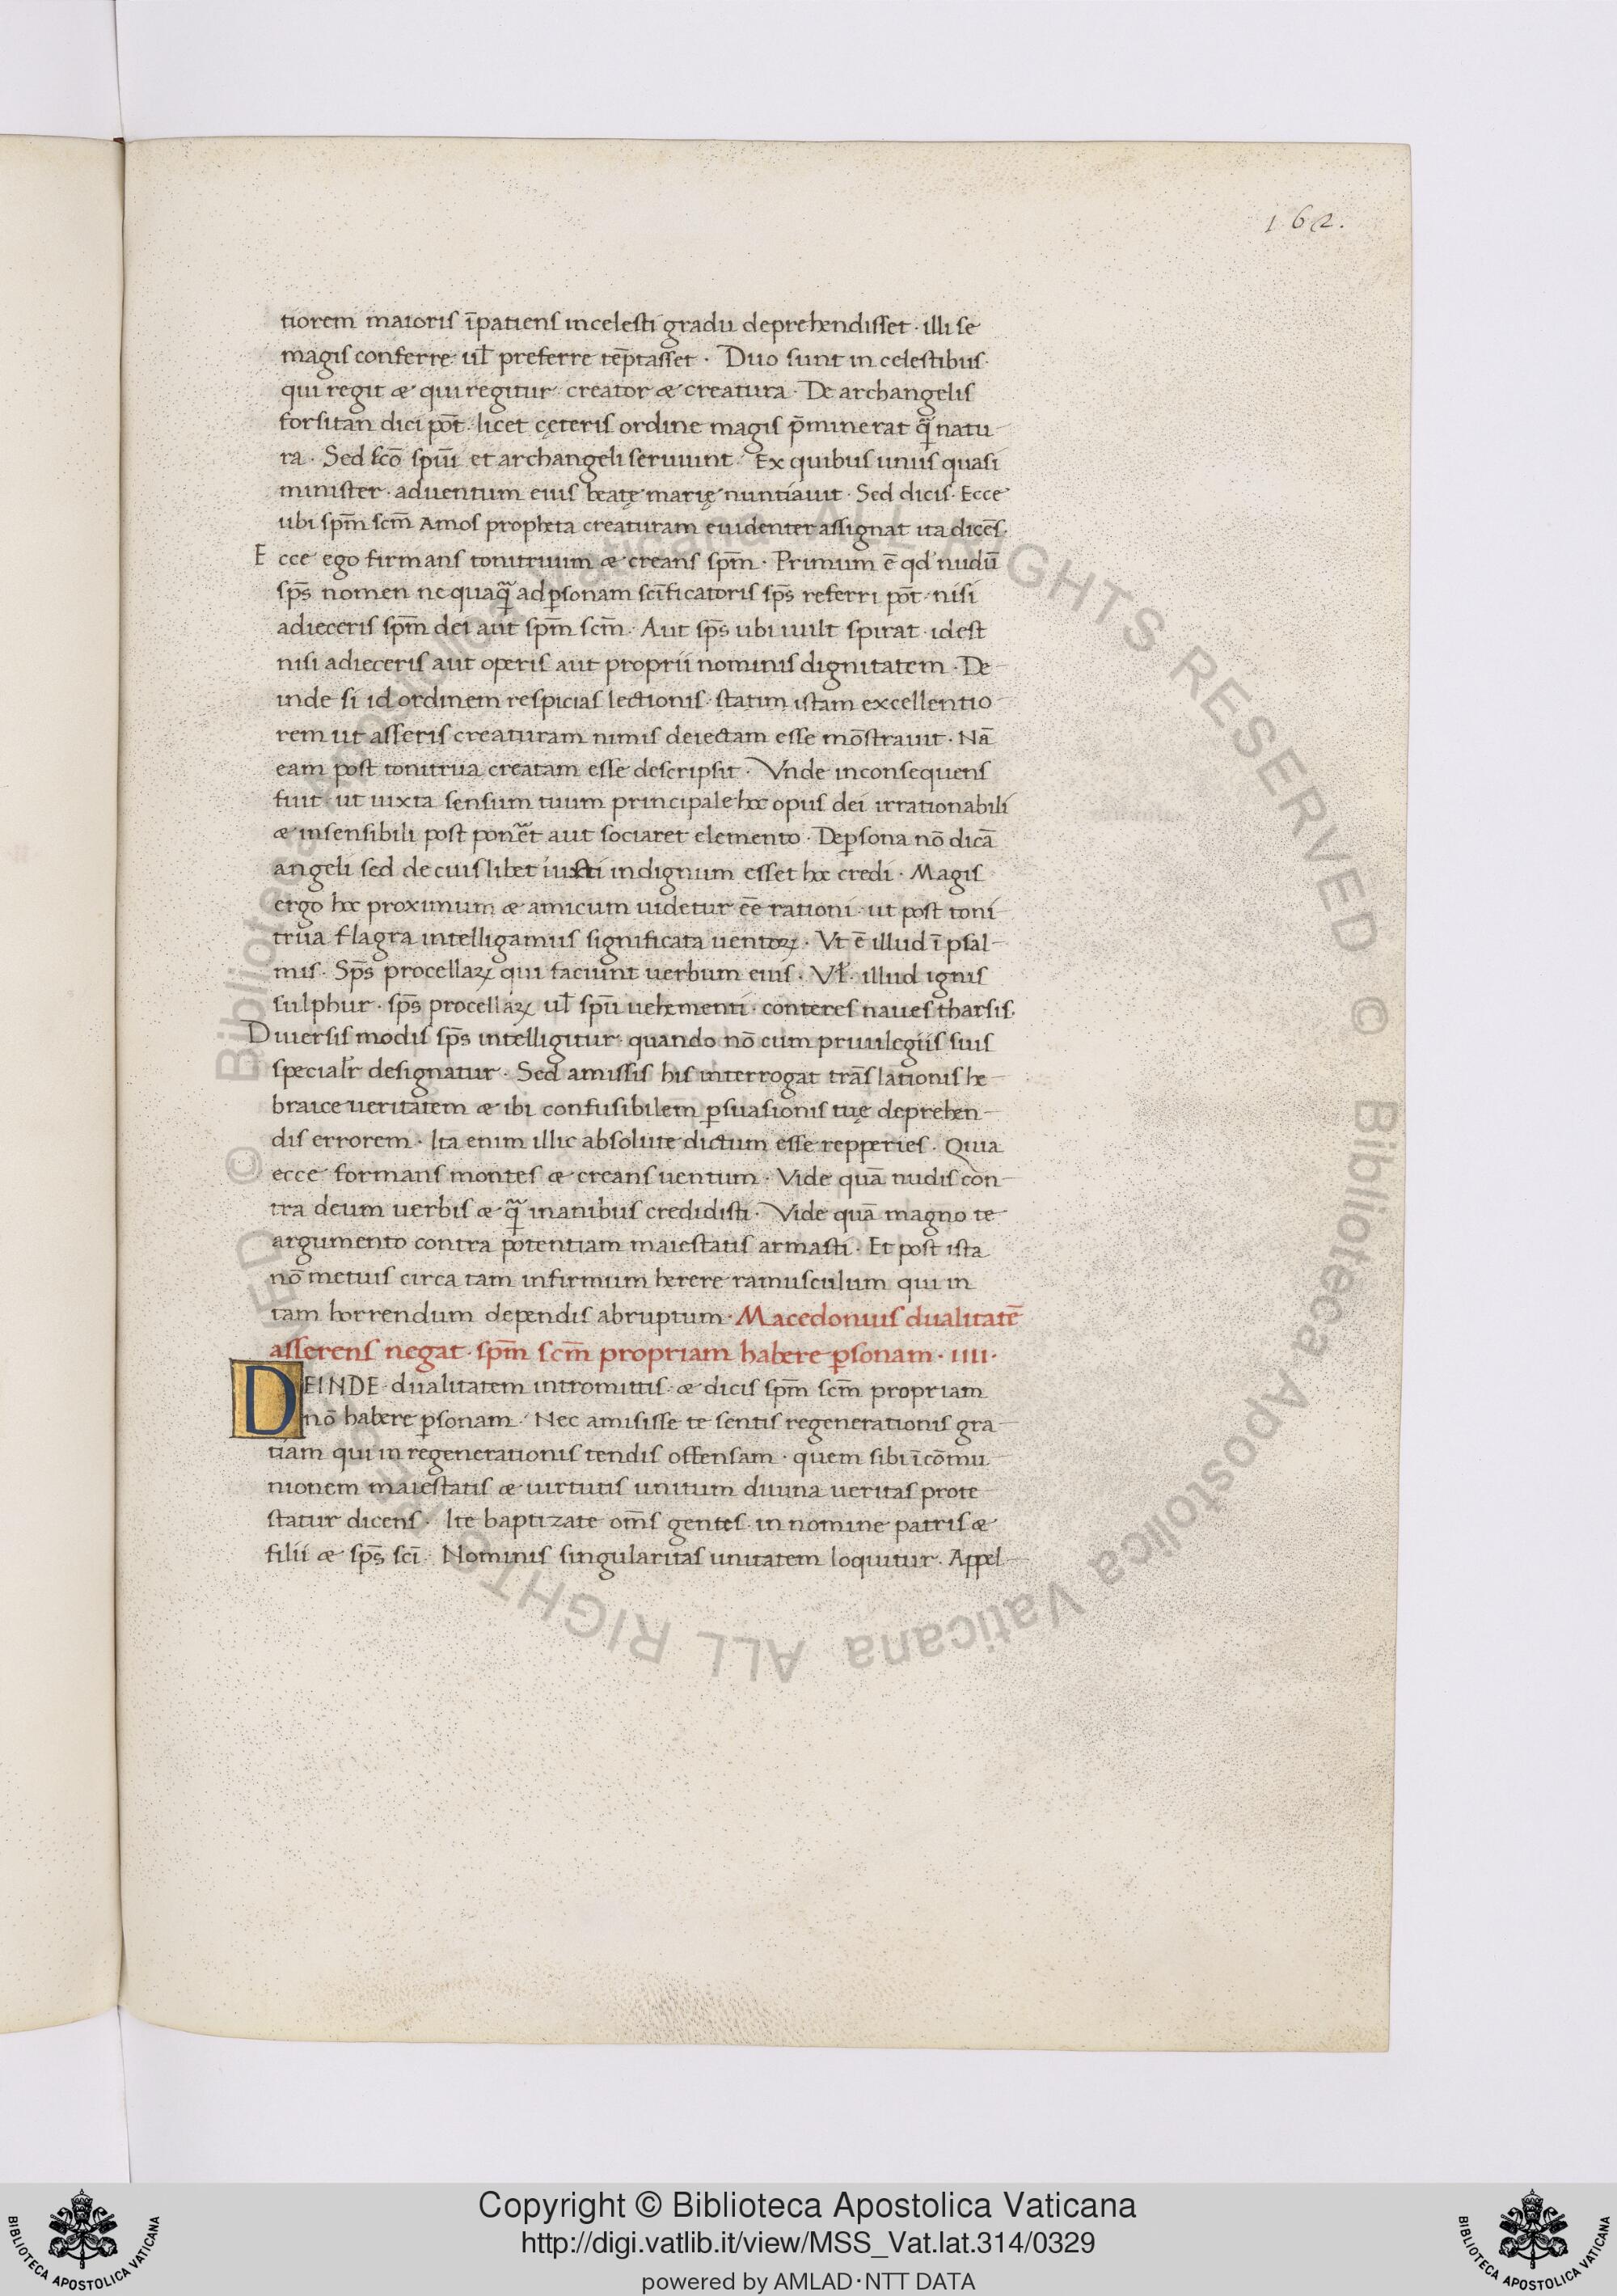 162.
tiorem maioris īpatiens incelesti gradu deprehendisset · illi se
magis conferre ul̄ preferre tēptasset · Duo sunt in celestibus·
qui regit æ qui regitur· creator æ creatura · De archangelis
forsitan dici pōt· licet cęteris ordine magis p̄minerat q̄ natu-
ra · Sed sc̄o spūi et archangeli seruiunt· Ex quibus unus quasi
minister · aduentum eius beatę marię nuntiauit · Sed dicis · Ecce
ubi sp̄m sc̄m Amos propheta creaturam euidenter assignat ita dicēs·
Ecce ego firmans tonitruum æ creans sp̄m · Primum ē qd' nudū
sp̄s nomen nequaq̄ adp̱sonam sc̄ificatoris sp̄s referri pōt· nisi
adieceris sp̄m dei aut sp̄m sc̄m· Aut sp̄s ubi uult spirat · idest
nisi adieceris aut operis aut proprii nominis dignitatem · De-
inde si id ordinem respicias lectionis· statim istam excellentio-
rem ut asseris creaturam nimis deiectam esse mōstrauit · Nā
eam post tonitrua creatam esse descripsit · Vnde inconsequens
fuit· ut iuxta sensum tuum principale hoc opus dei irrationabili
æ insensibili post ponēt aut sociaret elemento · Dep̱sona nō dicā
angeli sed de cuiuslibet iusti indignum esset hoc credi · Magis
ergo hoc proximum æ amicum uidetur eē rationi· ut post toni-
trua flagra intelligamus significata uentoꝝ · Vt ē illud ī psal-
mis · Sp̄s procellaꝝ qui faciunt uerbum eius · Vl̄· illud ignis
sulphur · sp̄s procellaꝝ ul̄ spū uehementi· conteres naues tharsis·
Diuersis modis sp̄s intelligitur· quando nō cum priuilegiis suis
specialr̄ designatur · Sed amissis his interrogat trāslationis he-
braice ueritatem æ ibi confusibilem p̱suasionis tuę deprehen-
dis errorem · Ita enim illic absolute dictum esse repperies · Quia
ecce formans montes æ creans uentum · Vide quā nudis con-
tra deum uerbis æ q̄ inanibus credidisti· Vide quā magno te
argumento contra potentiam maiestatis armasti · Et post ista
nō metuis circa tam infirmum herere ramusculum qui in
tam horrendum dependis abruptum · Macedonius dualitatē
asserens negat · sp̄m sc̄m propriam habere p̱sonam · IIII·
DEINDE dualitatem intromittis· æ dicis sp̄m sc̄m propriam
nō habere p̱sonam · Nec amisisse te sentis regenerationis gra-
tiam qui in regenerationis tendis offensam · quem sibi ī cōmu-
nionem maiestatis æ uirtutis unitum diuina ueritas prote-
statur dicens · Ite baptizate om̄s gentes· in nomine patris æ
filii æ sp̄s sc̄i· Nominis singularitas unitatem loquitur · Appel-
© Biblioteca Apostolica Vaticana ALL RIGHTS RESERVED © Biblioteca Apostolica Vaticana ALL RIGHTS RESERVED
Copyright © Biblioteca Apostolica Vaticana
http://digi.vatlib.it/view/MSS_Vat.lat.314/0329
powered by AMLAD·NTT DATA
BIBLIOTECA APOSTOLICA VATICANA
BIBLIOTECA APOSTOLICA VATICANA